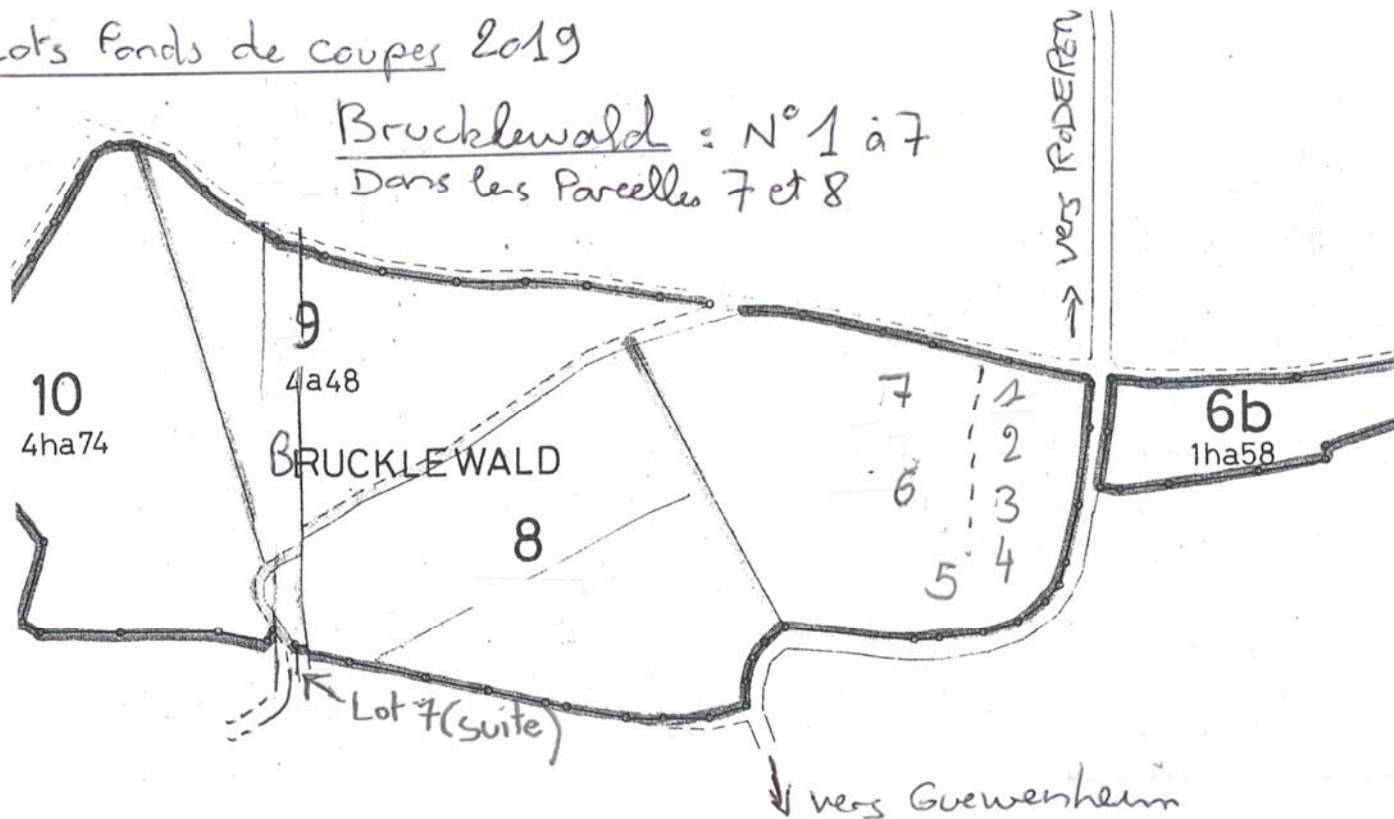 Lots fonds de coupes 2019
Brucklewald : N° 1 à 7
Dans les Parcelles 7 et 8
→ vers RODEREN
9
4a48
10
4ha74
BRUCKLEWALD
8
7
6
5
1
2
3
4
6b
1ha58
Lot 7 (suite)
vers Guewenheim